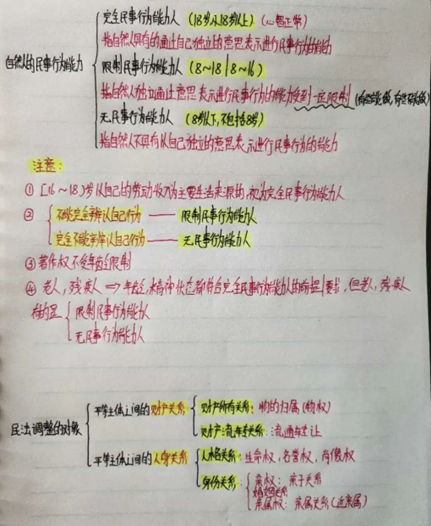 完全民事行为能力人 (18岁以18岁以上) (心智正常)
指自然人具有的通过自己独立的意思表示进行民事行为的能力
自然人的民事行为能力
限制民事行为能力人 (8~18|8~16)
指自然人独立通过意思表示进行民事行为的能力受到一定限制
无民事行为能力人 (8岁以下,不包括8岁)
指自然人不具有以自己独立的意思表示进行民事行为的能力
注意:
① [16~18)岁以自己的劳动收入为主要生活来源的,视为完全民事行为能力人
② 不能完全辨认自己行为 —— 限制民事行为能力人
完全不能辨认自己行为 —— 无民事行为能力人
③ 著作权不受年龄限制
④ 老人,残疾人 ⇒ 年龄,精神状态都符合完全民事行为能力人的,但老人,残疾人
限制民事行为能力人
无民事行为能力人
平等主体之间的财产关系
财产所有关系: 物的归属(物权)
财产流转关系: 流通与转让
民法调整的对象
平等主体之间的人身关系
人格关系: 生命权,名誉权,肖像权
身份关系:
亲权: 亲子关系
婚姻关系
亲属权: 亲属关系(近亲属)